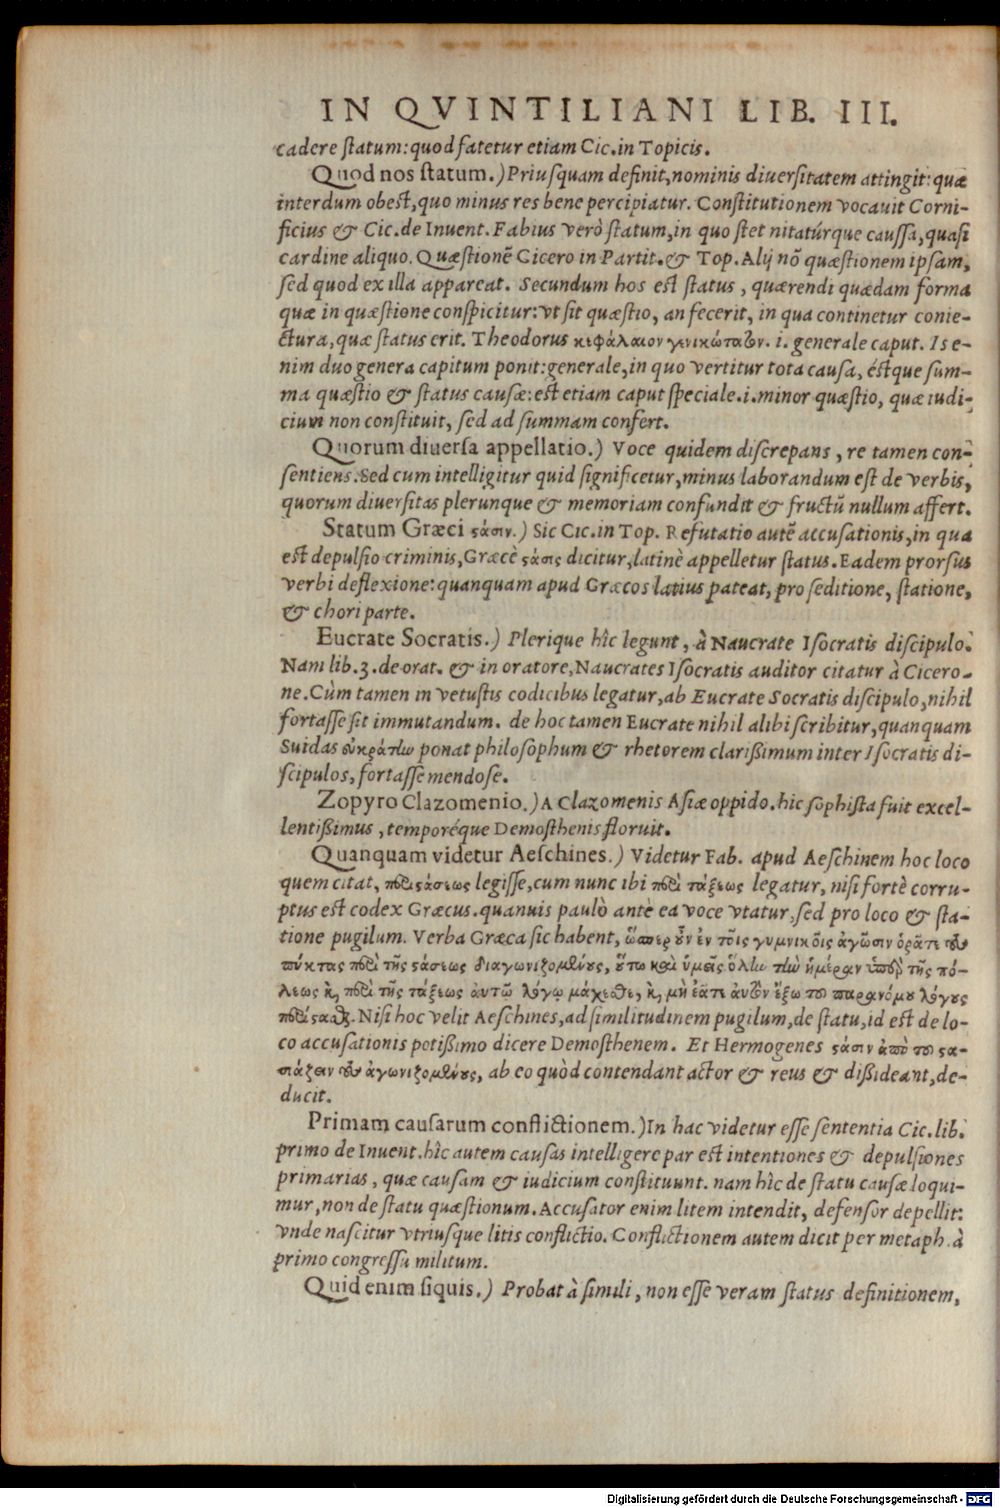 IN QVINTILIANI LIB. III.
cadere ſtatum: quod fatetur etiam Cic. in Topicis.
Quod nos ſtatum.) Priuſquam definit, nominis diuerſitatem attingit: quæ
interdum obeſt, quo minus res bene percipiatur. Conſtitutionem vocauit Corni-
ficius & Cic. de Inuent. Fabius verò ſtatum, in quo ſtet nitatúrque cauſſa, quaſi
cardine aliquo. Quæſtionẽ Cicero in Partit. & Top. Alij nõ quæſtionem ipſam,
ſed quod ex illa appareat. Secundum hos eſt ſtatus, quærendi quædam forma
quæ in quæſtione conſpicitur: vt ſit quæſtio, an fecerit, in qua continetur conie-
ctura, quæ ſtatus erit. Theodorus κεφάλαιον γενικώτατον. i. generale caput. Is e-
nim duo genera capitum ponit: generale, in quo vertitur tota cauſa, éſtque ſum-
ma quæſtio & ſtatus cauſæ: eſt etiam caput ſpeciale. i. minor quæſtio, quæ iudi-
cium non conſtituit, ſed ad ſummam confert.
Quorum diuerſa appellatio.) Voce quidem diſcrepans, re tamen con-
ſentiens. Sed cum intelligitur quid ſignificetur, minus laborandum eſt de verbis,
quorum diuerſitas plerunque & memoriam confundit & fructũ nullum affert.
Statum Græci ϛάσιν.) Sic Cic. in Top. Refutatio autẽ accuſationis, in qua
eſt depulſio criminis, Græcè ϛάσις dicitur, latinè appelletur ſtatus. Eadem prorſus
verbi deflexione: quanquam apud Græcos latius pateat, pro ſeditione, ſtatione,
& chori parte.
Eucrate Socratis.) Plerique hîc legunt, à Naucrate Iſocratis diſcipulo.
Nam lib. 3. de orat. & in oratore, Naucrates Iſocratis auditor citatur à Cicero-
ne. Cùm tamen in vetuſtis codicibus legatur, ab Eucrate Socratis diſcipulo, nihil
fortaſſe ſit immutandum. de hoc tamen Eucrate nihil alibi ſcribitur, quanquam
Suidas εὐκράτην ponat philoſophum & rhetorem clarißimum inter Iſocratis di-
ſcipulos, fortaſſe mendoſe.
Zopyro Clazomenio.) A Clazomenis Aſiæ oppido. hic ſophiſta fuit excel-
lentißimus, temporéque Demoſthenis floruit.
Quanquam videtur Aeſchines.) Videtur Fab. apud Aeſchinem hoc loco
quem citat, περὶ ϛάσεως legiſſe, cum nunc ibi περὶ τάξεως legatur, niſi fortè corru-
ptus eſt codex Græcus. quanuis paulò antè ea voce vtatur, ſed pro loco & ſta-
tione pugilum. Verba Græca ſic habent, ὥσπερ οὖν ἐν τοῖς γυμνικοῖς ἀγῶσιν ὁρᾶτε τοὺς
πύκτας περὶ τῆς ϛάσεως διαγωνιζομένους, οὕτω καὶ ὑμεῖς ὅλην τὴν ἡμέραν ὑπὲρ τῆς πό-
λεως καὶ περὶ τῆς τάξεως αὐτῷ λόγῳ μάχεσθε, καὶ μὴ ἐᾶτε αὐτὸν ἔξω τοῦ παρανόμου λόγους
περιΐϛασθαι. Niſi hoc velit Aeſchines, ad ſimilitudinem pugilum, de ſtatu, id eſt de lo-
co accuſationis potißimo dicere Demoſthenem. Et Hermogenes ϛάσιν ἀπὸ τοῦ ϛα-
σιάζειν τοὺς ἀγωνιζομένους, ab eo quòd contendant actor & reus & dißideant, de-
ducit.
Primam cauſarum conflictionem.) In hac videtur eſſe ſententia Cic. lib.
primo de Inuent. hîc autem cauſas intelligere par eſt intentiones & depulſiones
primarias, quæ cauſam & iudicium conſtituunt. nam hîc de ſtatu cauſæ loqui-
mur, non de ſtatu quæſtionum. Accuſator enim litem intendit, defenſor depellit:
vnde naſcitur vtriuſque litis conflictio. Conflictionem autem dicit per metaph. à
primo congreſſu militum.
Quid enim ſiquis.) Probat à ſimili, non eſſe veram ſtatus definitionem,
Digitalisierung gefördert durch die Deutsche Forschungsgemeinschaft - DFG